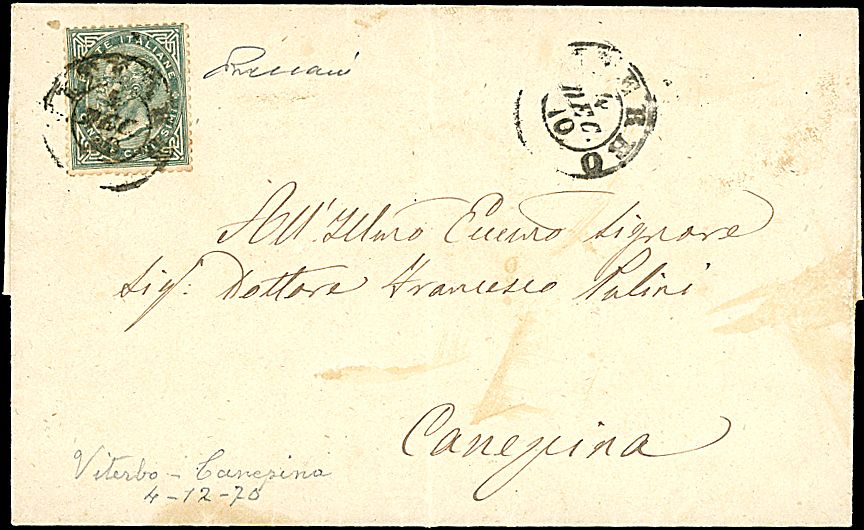 POSTE ITALIANE
VITERBO
4
DEC.
10
All'Illmo Eccmo Signore
Sig. Dottore Francesco Palini
Canepina
Viterbo - Canepina
4-12-70